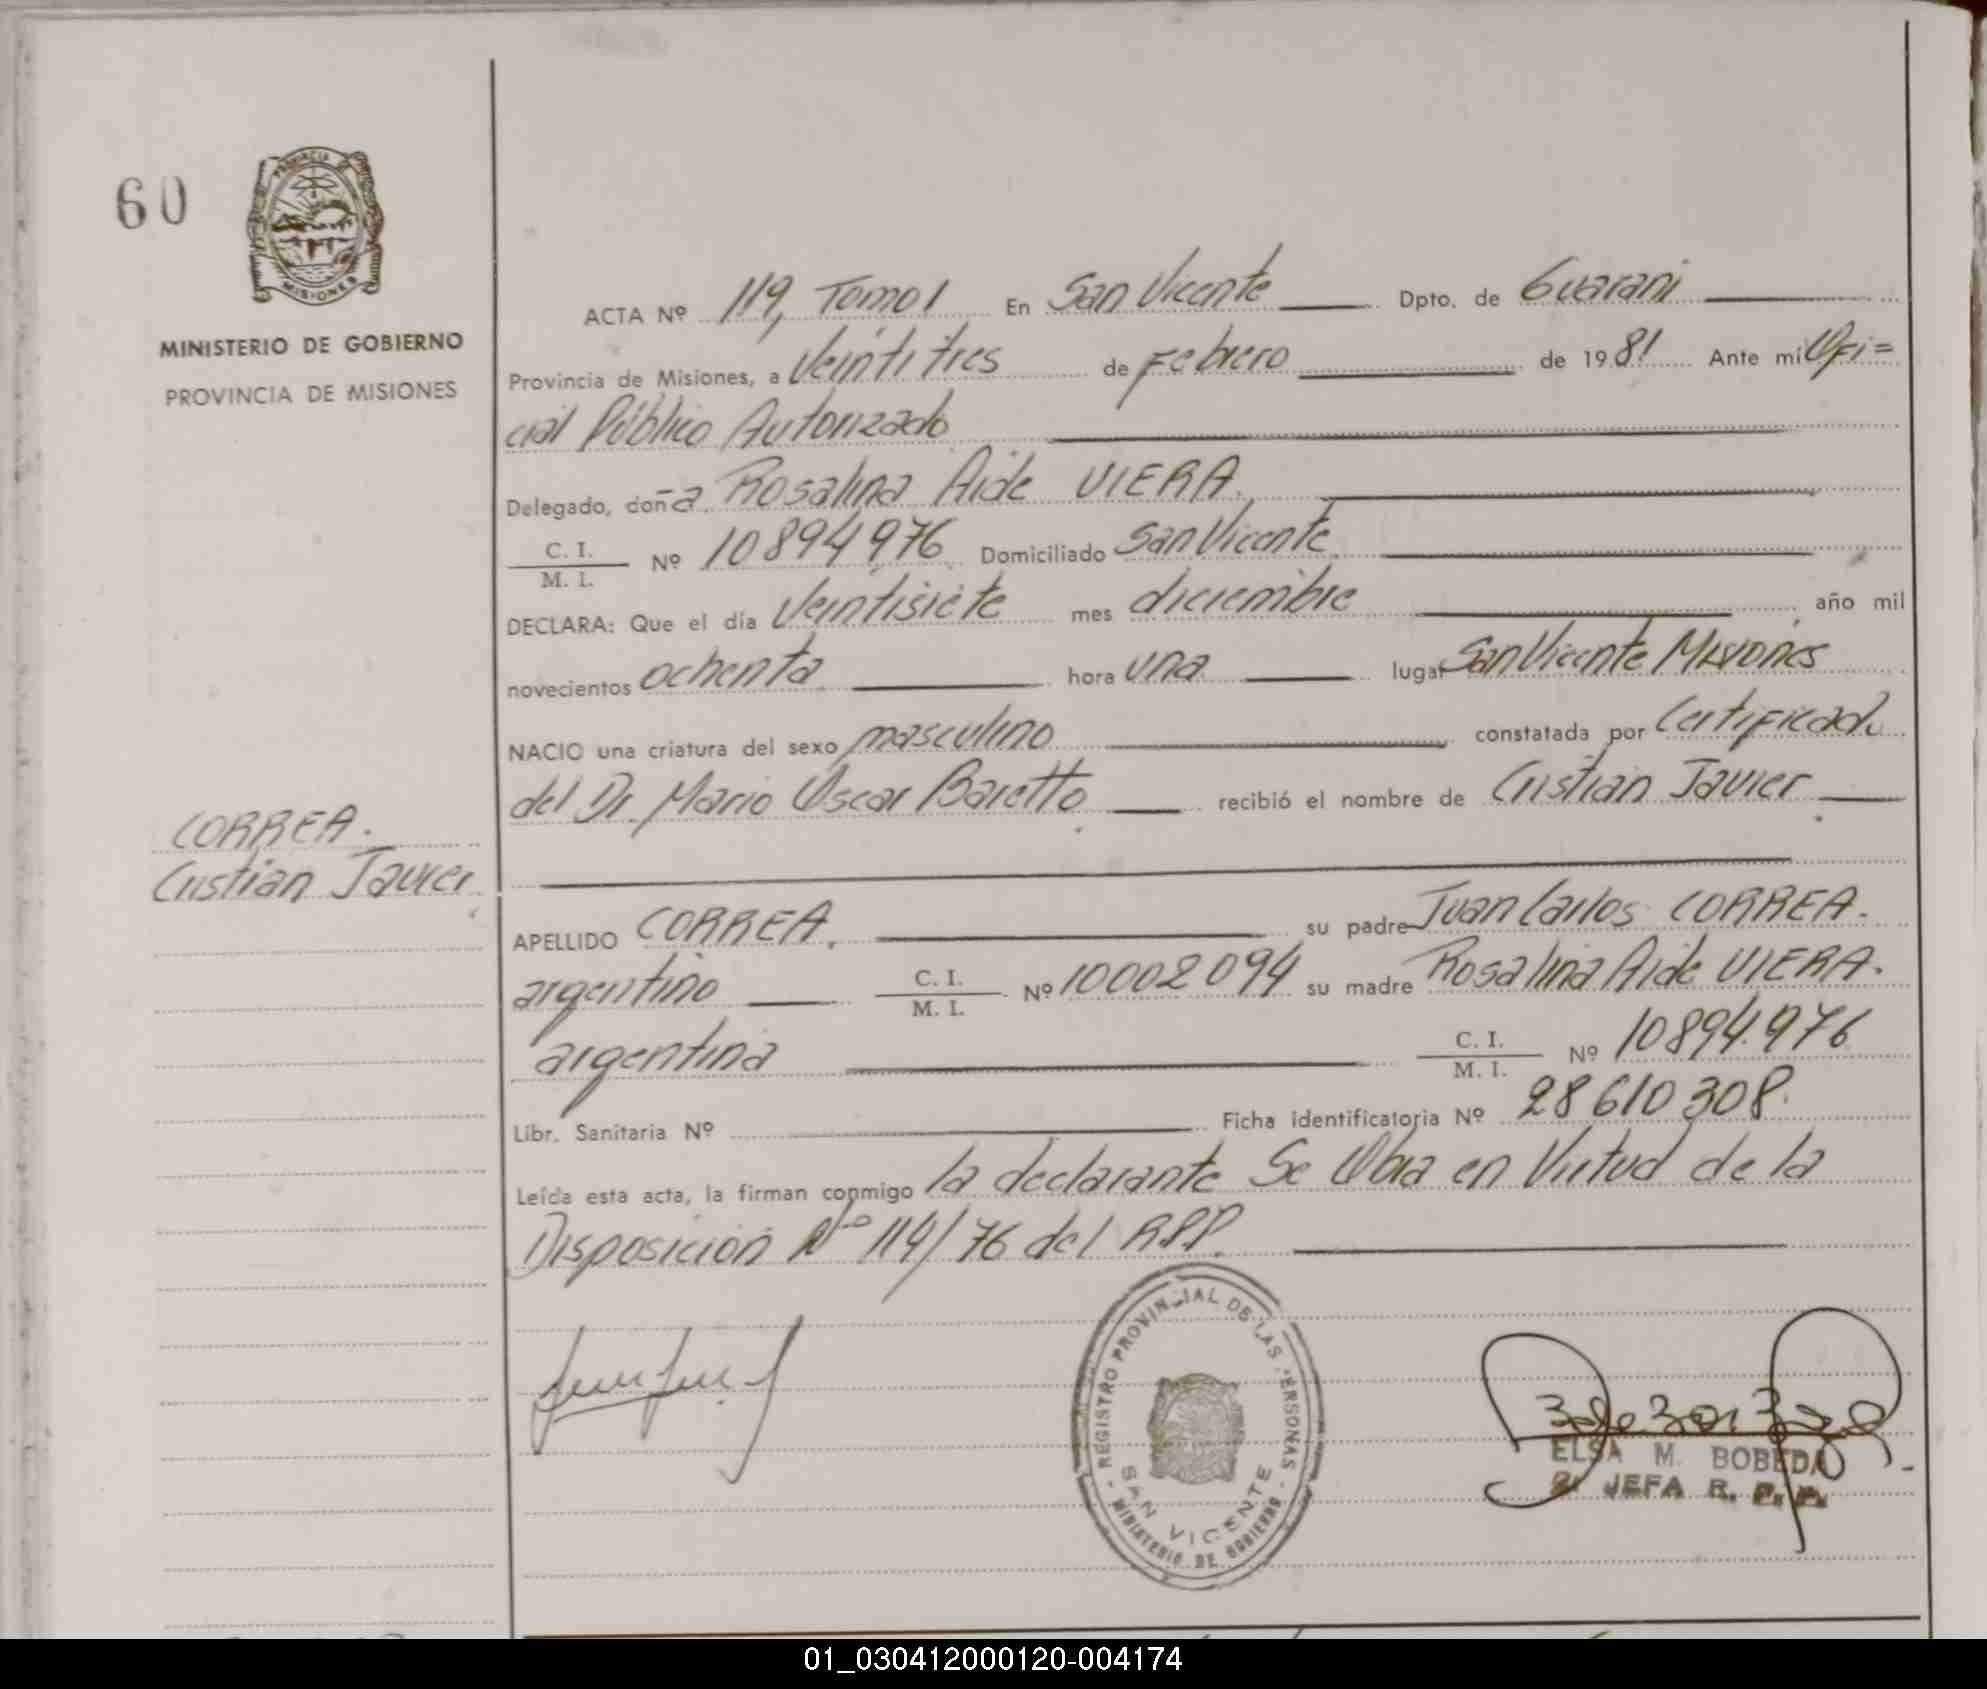 60
PROVINCIA DE
MISIONES
MINISTERIO DE GOBIERNO
PROVINCIA DE MISIONES
CORREA.
Cristian Javier
ACTA Nº 119, Tomo I En San Vicente Dpto. de Guarani
Provincia de Misiones, a Veintitres de Febrero de 1981 Ante mi Ofi=
cial Público Autorizado
Delegado, doña Rosalina Aide VIERA.
C. I.
M. I. Nº 10894976 Domiciliado San Vicente
DECLARA: Que el día Veintisiete mes diciembre, año mil
novecientos ochenta hora una lugar San Vicente Misiones
NACIO una criatura del sexo masculino constatada por Certificado
del Dr. Mario Oscar Baretto recibió el nombre de Cristian Javier
APELLIDO CORREA. su padre Juan Carlos CORREA.
argentino C. I.
M. I. Nº 10002094 su madre Rosalina Aide VIERA.
argentina C. I.
M. I. Nº 10894.976
Libr. Sanitaria Nº Ficha identificatoria Nº 28610308.
Leída esta acta, la firman conmigo la declarante Se Obra en Virtud de la
Disposición Nº 114/76 del RPP.
REGISTRO PROVINCIAL DE LAS PERSONAS
SAN VICENTE
MINISTERIO DE GOBIERNO
ELSA M. BOBEDA
JEFA R. P. P.
01_030412000120-004174